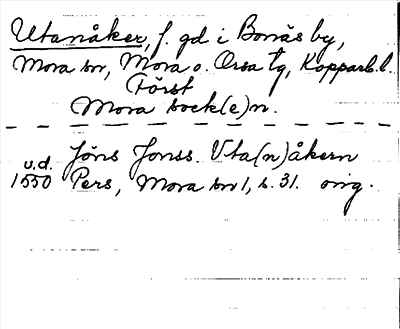 Utanåker, f. gd i Bonäs by,
Mora sn, Mora o. Orsa tg, Kopparb. l.
Först
Mora sock(e)n.
Jöns Jonss. Vta(n)åkern
u.d.
1550 Pers, Mora sn 1, s. 31. orig.